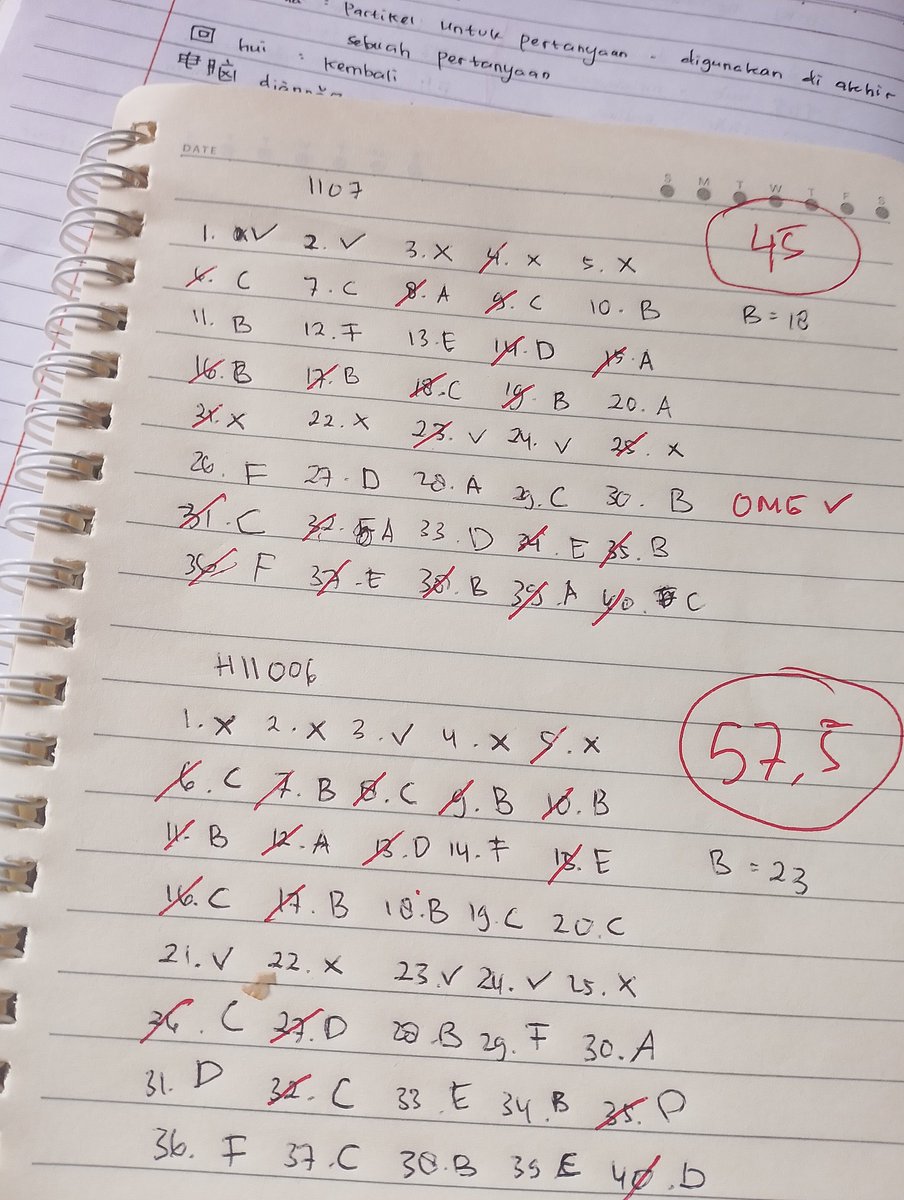 : Partikel untuk pertanyaan - digunakan di akhir
sebuah pertanyaan
回 hui : kembali
电脑 diànnǎo
DATE
S M T W T F S
1107
45
1. V 2. V 3. X 4. X 5. X
6. C 7. C 8. A 9. C 10. B
B = 18
11. B 12. F 13. E 14. D 15. A
16. B 17. B 18. C 19. B 20. A
21. X 22. X 23. V 24. V 25. X
26. F 27. D 28. A 29. C 30. B OMG ✓
31. C 32. A 33. D 34. E 35. B
36. F 37. E 38. B 39. A 40. C
H11006
57,5
1. X 2. X 3. V 4. X 5. X
6. C 7. B 8. C 9. B 10. B
11. B 12. A 13. D 14. F 15. E
B = 23
16. C 17. B 18. B 19. C 20. C
21. V 22. X 23. V 24. V 25. X
26. C 27. D 28. B 29. F 30. A
31. D 32. C 33. E 34. B 35. D
36. F 37. C 38. B 39 E 40. D